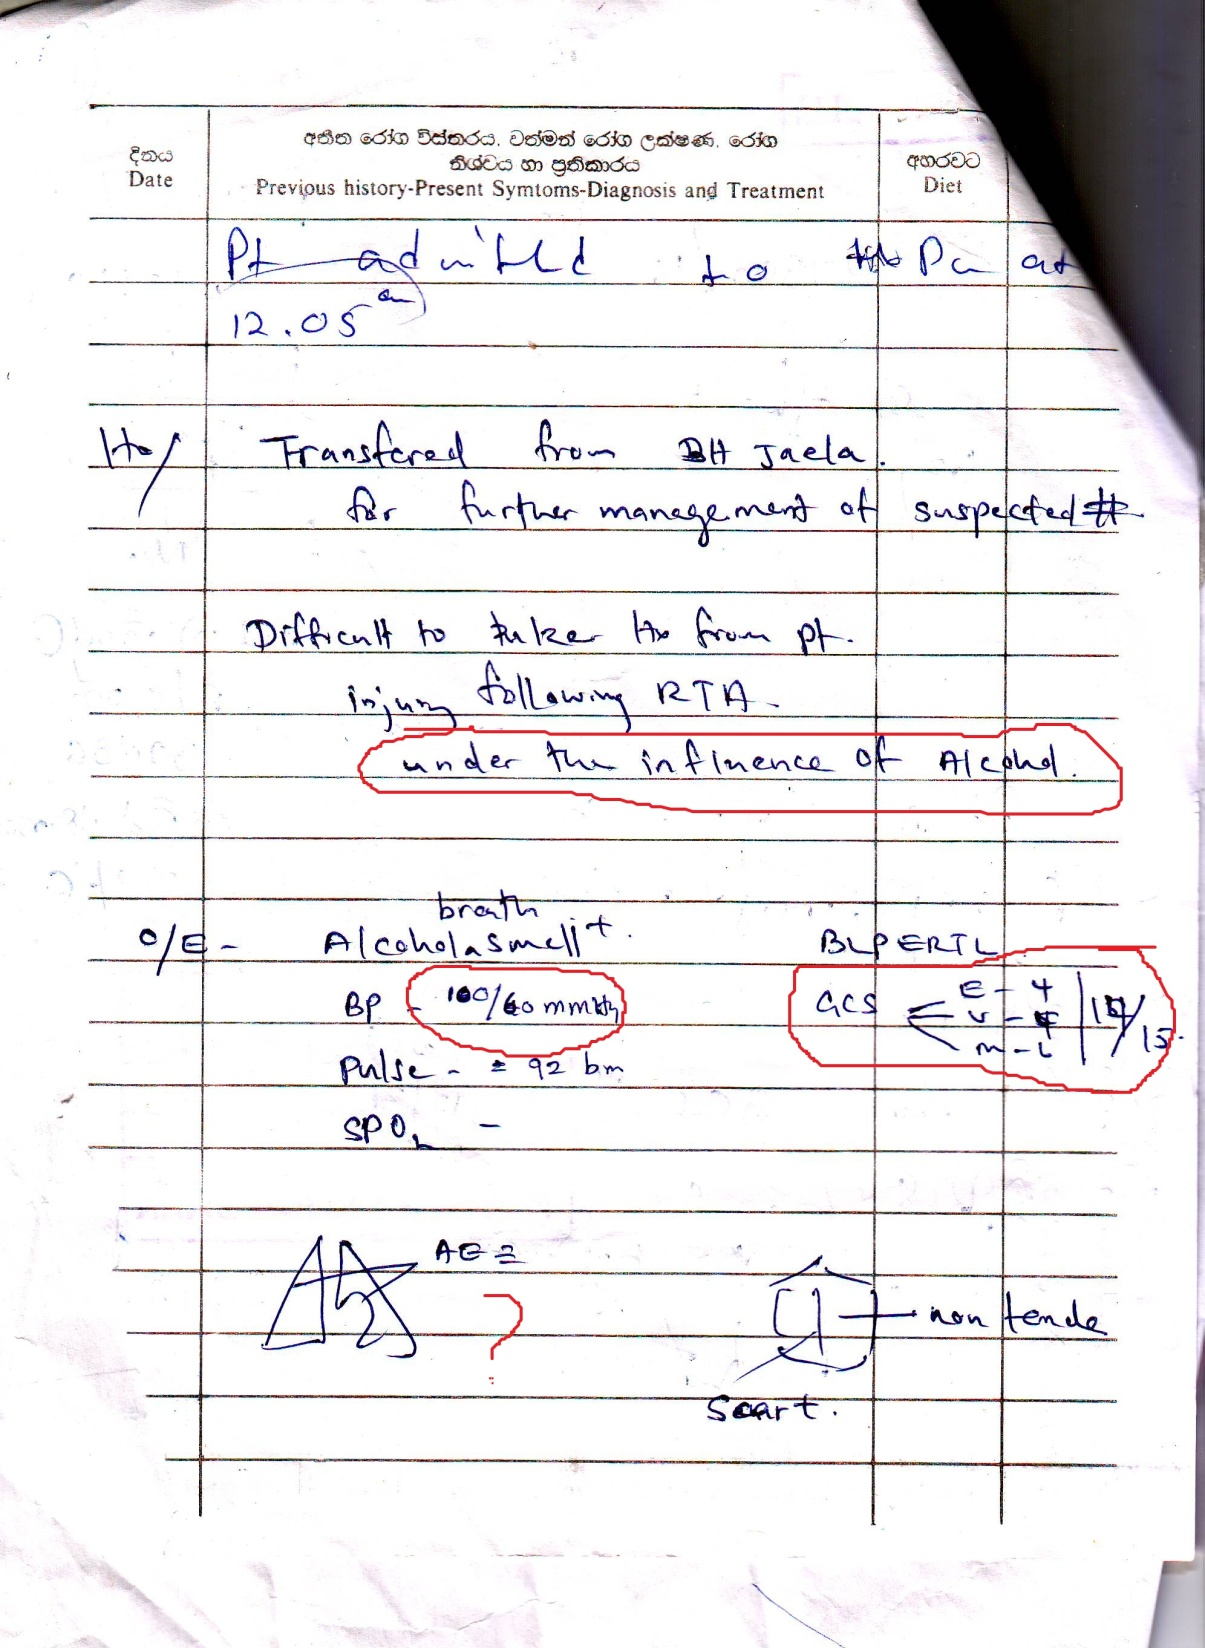 දිනය
Date
අතීත රෝග විස්තරය, වත්මන් රෝග ලක්ෂණ, රෝග
නිශ්චය හා ප්‍රතිකාරය
Previous history-Present Symtoms-Diagnosis and Treatment
අහරවට
Diet
Pt admitted to at
12.05 am
Hx/ Transfered from BH Jaela.
for further management of suspected #
Difficult to taker Hx from pt.
injury following RTA -
under the influence of Alcohol.
breath
O/E - Alcohola smell +. BLPERTL
BP - 100/60 mmHg GCS E - 4
V - 4 14/15.
M - 6
Pulse - = 92 bm
SPO2 -
AE =
?
non tende
Scart.